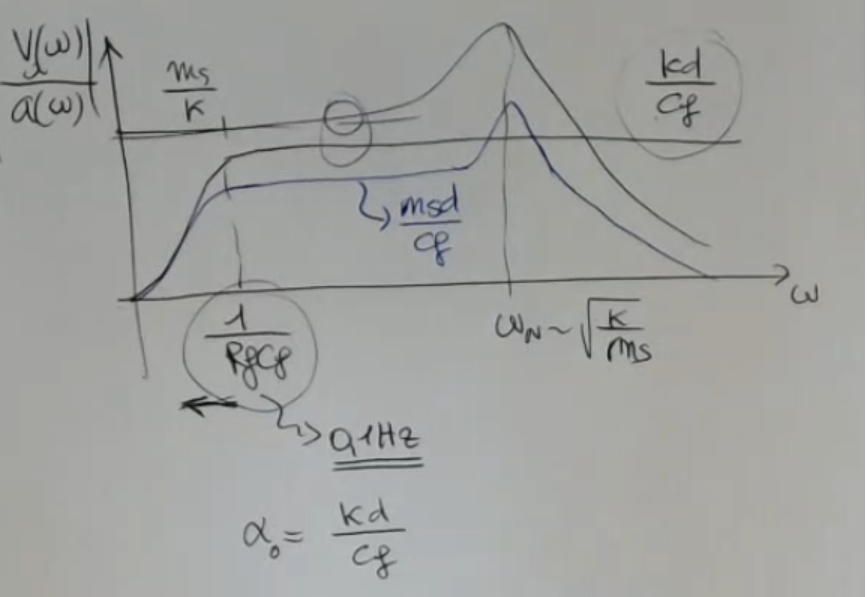 V(ω)
a(ω)
ms
K
kd
Cf
msd
Cf
ω
1
RfCf
ωN ~ √ K
ms
0,1Hz
α₀ = Kd
Cf